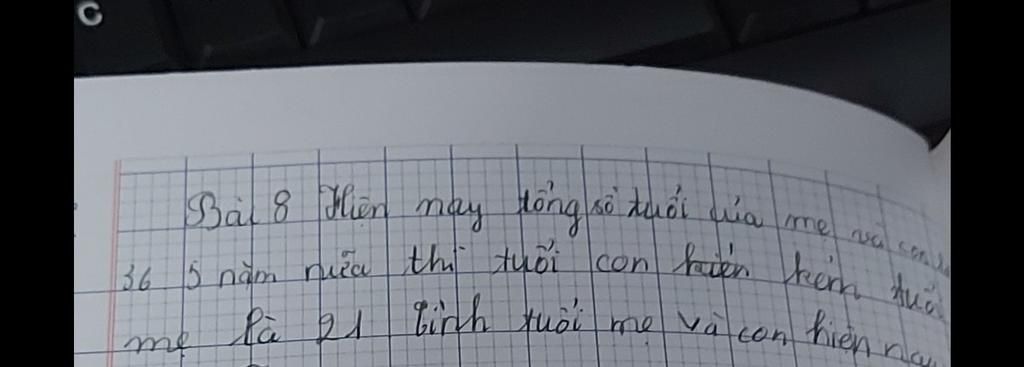 C
Bài 8 Hiện nay tổng số tuổi của mẹ và con là
36 5 năm nữa thì tuổi con kém tuổi
mẹ là 21 tính tuổi mẹ và con hiện nay